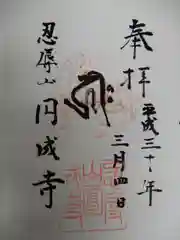 奉拝
平成三十年
三月四日
忍辱山円成寺